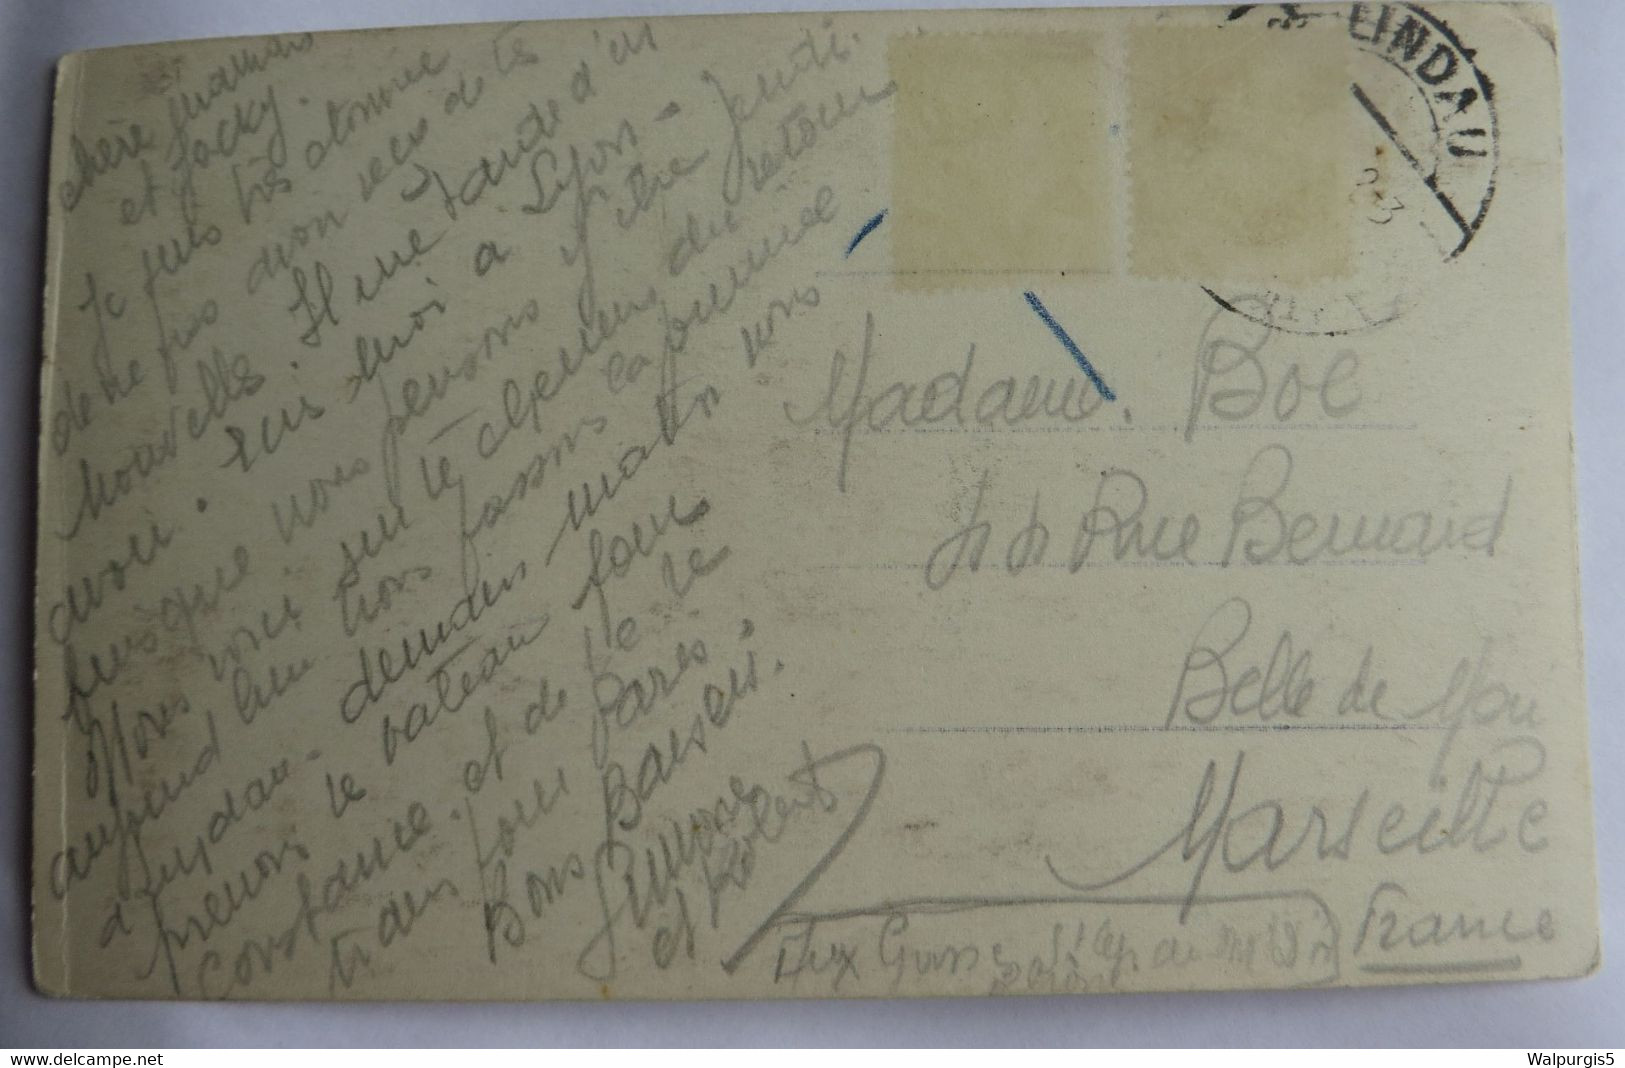 chère maman
et Jacky.
Je suis très étonnée
de ne pas avoir reçu de tes
nouvelles. Il me tarde d'en
avoir. suis moi a Lyon -
puisque nous pensons y être Jeudi.
Nous voici sur le chemin du retour
aujourd'hui nous passons la journée
a Lindau. demain matin nous
prenons le bateau pour
constance. et de la le
train pour Paris.
Bons Baisers.
Simone
et Robert
LINDAU
Madame. Boe
Rue Bernard
Belle de Mai
Marseille
France
www.delcampe.net
Walpurgis5